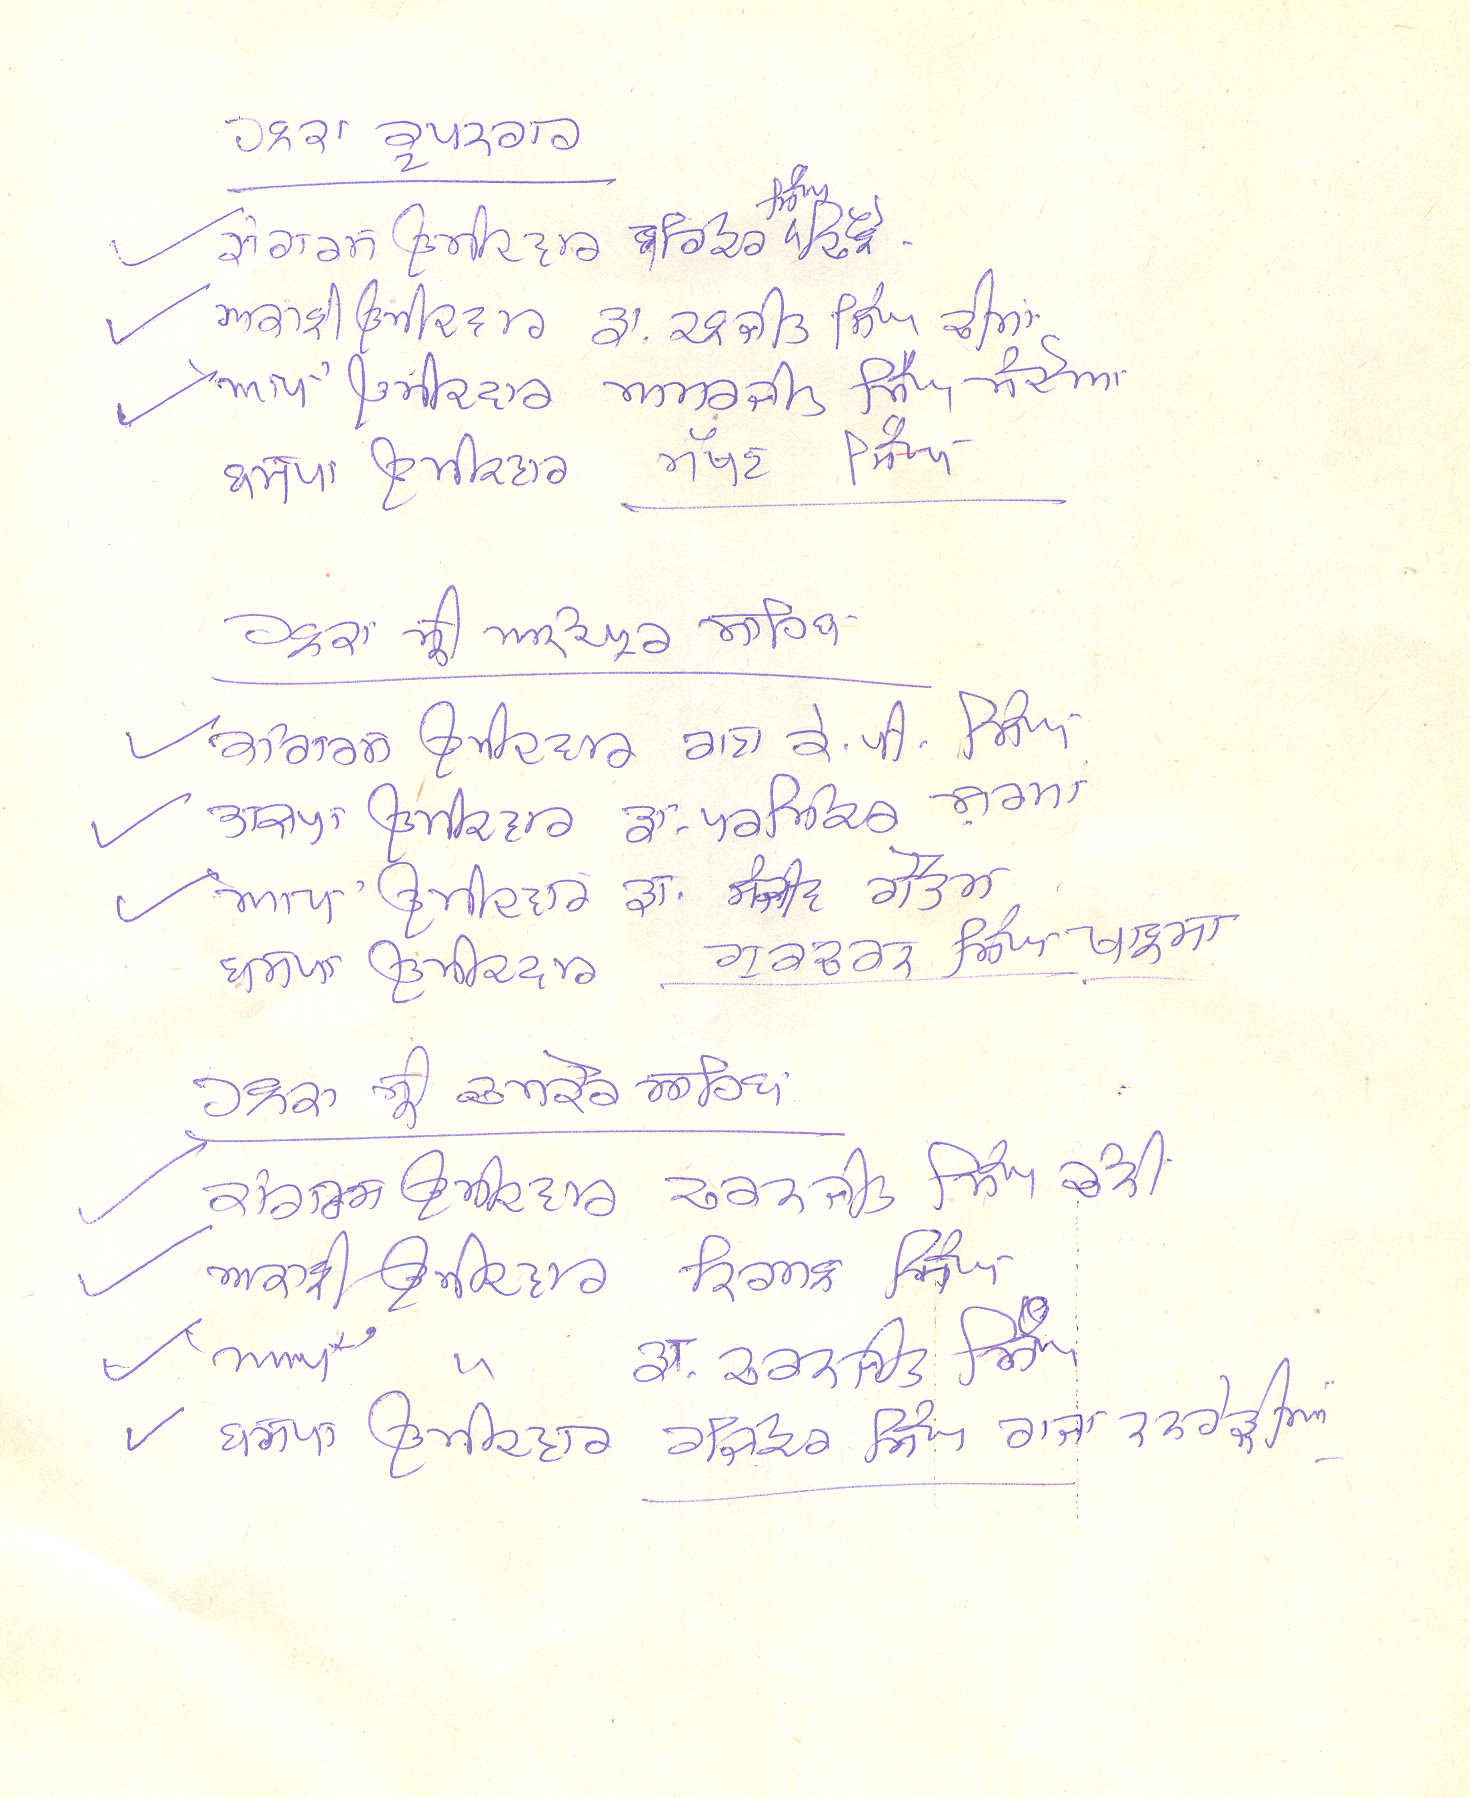 ਹਲਕਾ ਰੂਪਨਗਰ
ਕਾਂਗਰਸ ਉਮੀਦਵਾਰ ਬਰਿੰਦਰ ਸਿੰਘ ਢਿੱਲੋਂ
ਅਕਾਲੀ ਉਮੀਦਵਾਰ ਡਾ. ਦਲਜੀਤ ਸਿੰਘ ਚੀਮਾ
'ਆਪ' ਉਮੀਦਵਾਰ ਅਮਰਜੀਤ ਸਿੰਘ ਸੰਦੋਆ
ਬਸਪਾ ਉਮੀਦਵਾਰ ਮੱਖਣ ਸਿੰਘ
ਹਲਕਾ ਸ੍ਰੀ ਅਨੰਦਪੁਰ ਸਾਹਿਬ
ਕਾਂਗਰਸ ਉਮੀਦਵਾਰ ਰਾਣਾ ਕੇ.ਪੀ. ਸਿੰਘ
ਭਾਜਪਾ ਉਮੀਦਵਾਰ ਡਾ. ਪਰਮਿੰਦਰ ਸ਼ਰਮਾ
'ਆਪ' ਉਮੀਦਵਾਰ ਡਾ. ਸੰਜੀਵ ਗੌਤਮ
ਬਸਪਾ ਉਮੀਦਵਾਰ ਗੁਰਚਰਨ ਸਿੰਘ ਖਾਲਸਾ
ਹਲਕਾ ਸ੍ਰੀ ਚਮਕੌਰ ਸਾਹਿਬ
ਕਾਂਗਰਸ ਉਮੀਦਵਾਰ ਚਰਨਜੀਤ ਸਿੰਘ ਚੰਨੀ
ਅਕਾਲੀ ਉਮੀਦਵਾਰ ਸਿੰਘ
'ਆਪ' " ਡਾ. ਚਰਨਜੀਤ ਸਿੰਘ
ਬਸਪਾ ਉਮੀਦਵਾਰ ਰਜਿੰਦਰ ਸਿੰਘ ਰਾਜਾ ਨਨਹੇੜੀਆਂ